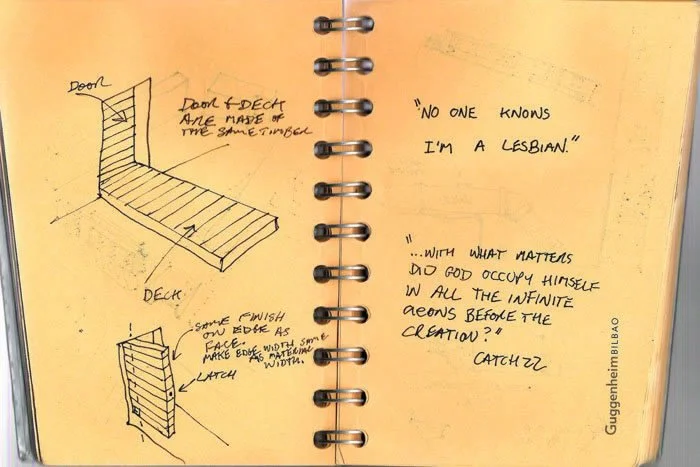 DOOR
DOOR & DECK
ARE MADE OF
THE SAME TIMBER
DECK
SAME FINISH
ON EDGE AS
FACE.
MAKE EDGE WIDTH SAME
AS MATERIAL
WIDTH.
LATCH
"NO ONE KNOWS
I'M A LESBIAN."
"
...WITH WHAT MATTERS
DID GOD OCCUPY HIMSELF
IN ALL THE INFINITE
AEONS BEFORE THE
CREATION?"
CATCH 22
GuggenheimBILBAO